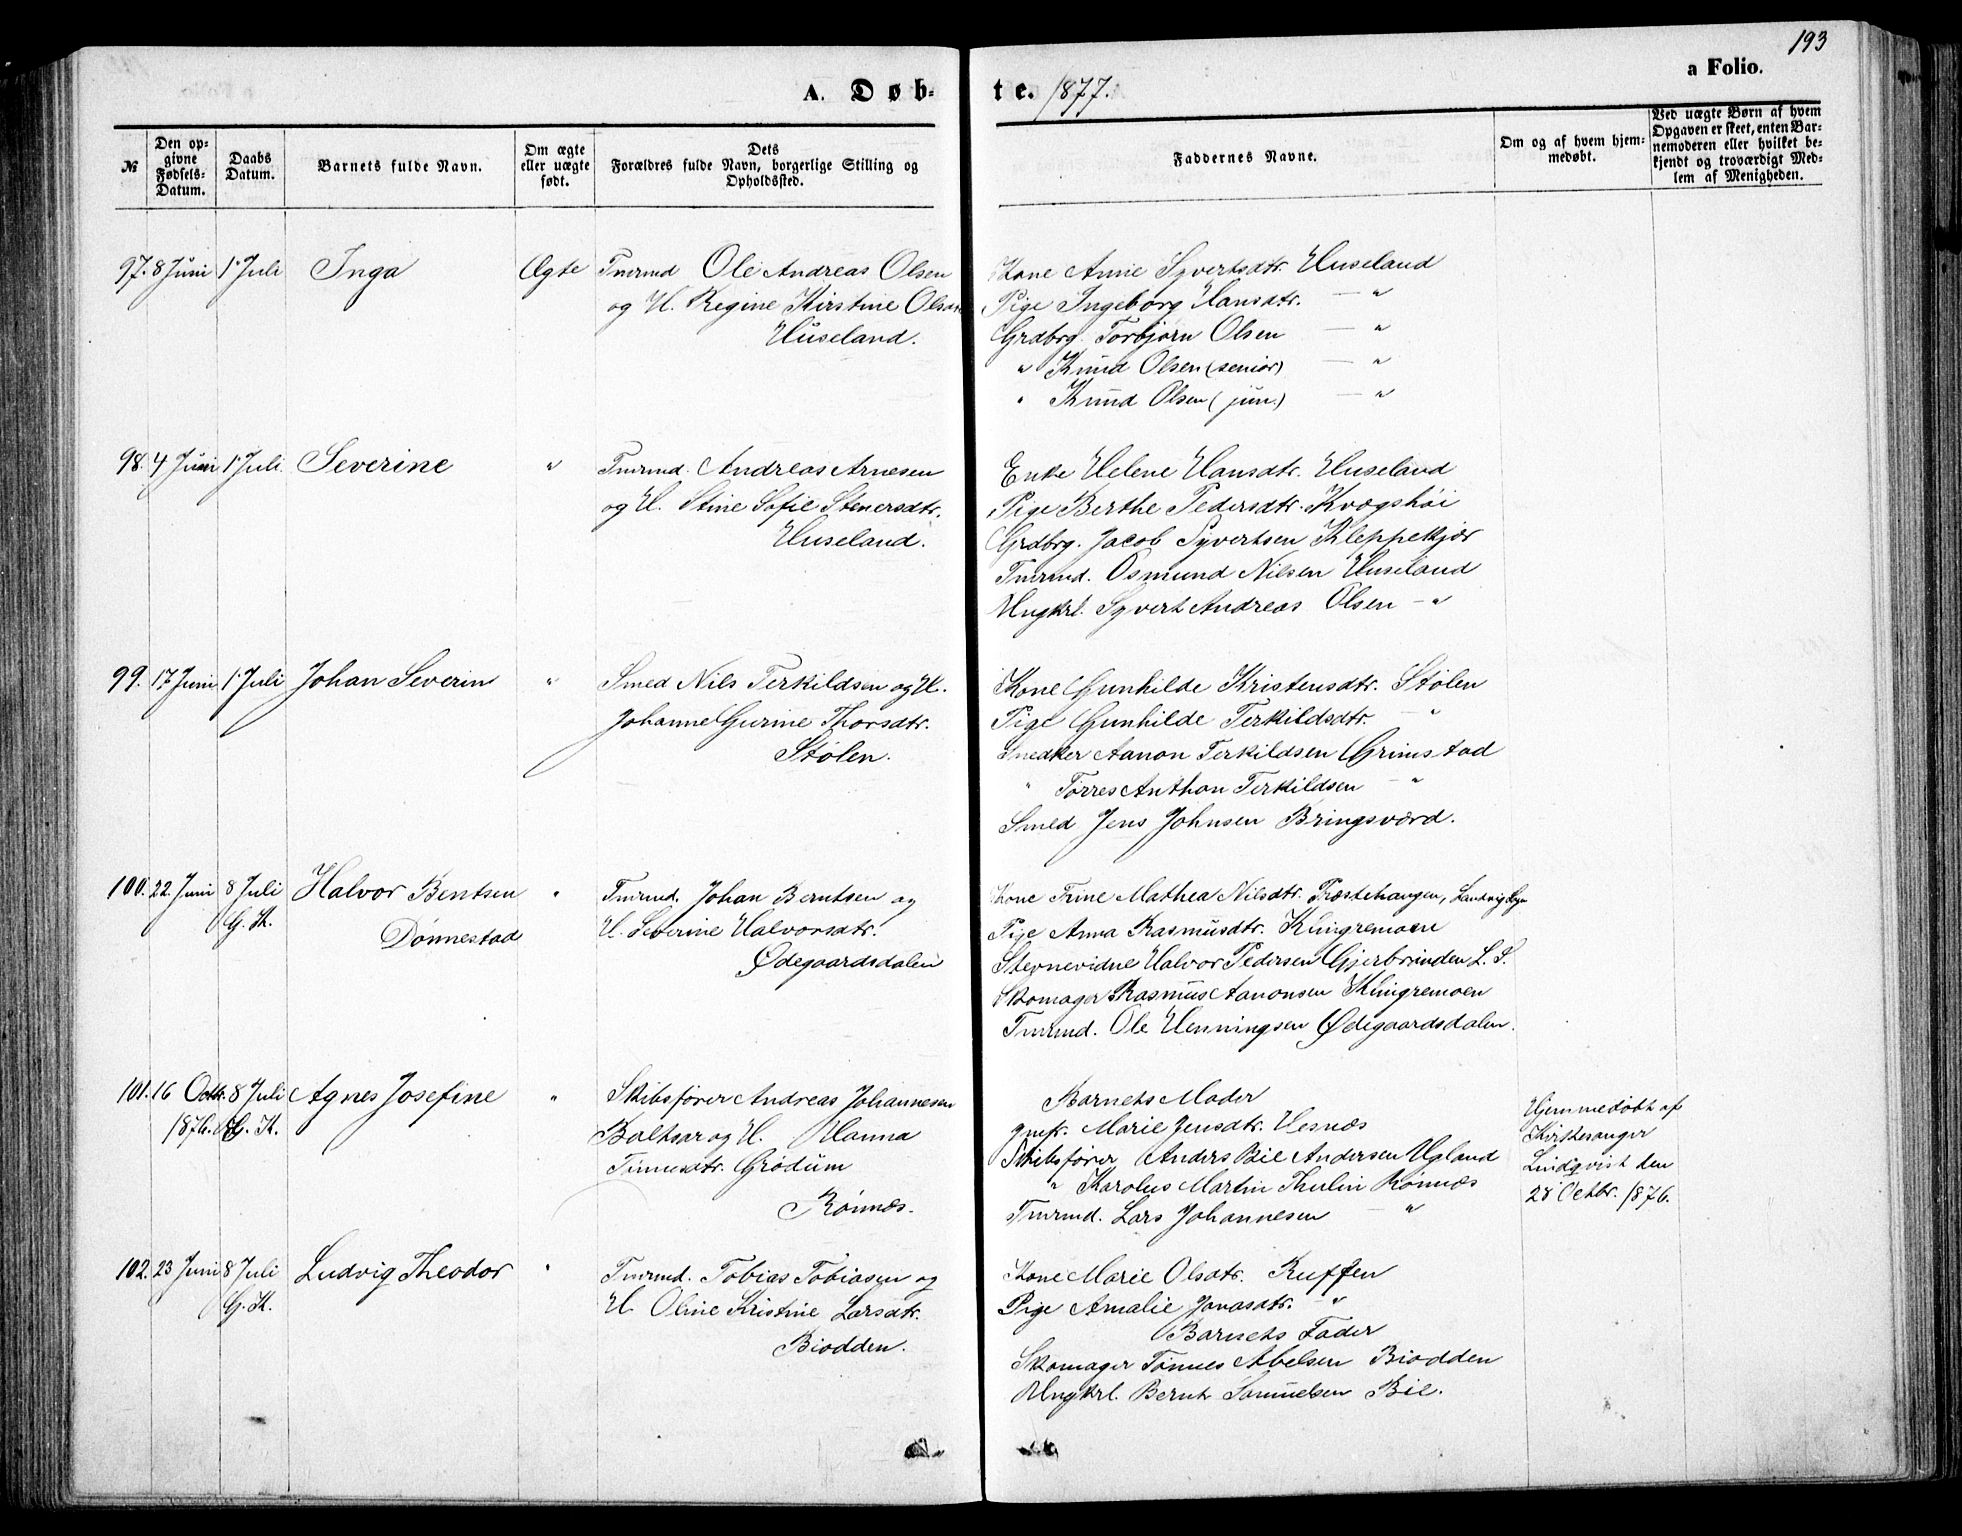 193
a Folio.
A. Døb-
te. 1877.
№
Den op-
givne
Fødsels-
Datum.
Daabs
Datum.
Barnets fulde Navn.
Om ægte
eller uægte
født.
Dets
Forældres fulde Navn, borgerlige Stilling og
Opholdssted.
Faddernes Navne.
Om og af hvem hjem-
medøbt.
Ved uægte Børn af hvem
Opgaven er skeet, enten Bar-
nemoderen eller hvilket be-
kjendt og troværdigt Med-
lem af Menigheden.
97. 8 Juni 1 Juli Inga Ægte Tmrmd Ole Andreas Olsen
og H. Regine Kirstine Olsen
Huseland.
Kone Anne Syvertsdtr. Huseland
Pige Ingeborg Hansdtr. — "
Grdbrg. Torbjørn Olsen — "
" Knud Olsen (senior) — "
" Knud Olsen (jun.) — "
98. 4 Juni 1 Juli Severine " Tmrmd. Andreas Arnesen
og H. Stine Sofie Stenersdtr.
Huseland.
Enke Helene Hansdtr. Huseland
Pige Berthe Pedersdtr. Kvægshøi
Grdbrg. Jacob Syvertsen Kleppekjær
Tmrmd. Osmund Nilsen Huseland
Ungkrl. Syvert Andreas Olsen — "
99. 17 Juni 1 Juli Johan Severin " Smed Nils Terkildsen og H.
Johanne Gurine Thorsdtr.
Stølen.
Kone Gunhilde Kristensdtr. Stølen
Pige Gunhilde Terkildsdtr. — "
Snedker Aanon Terkildsen Grimstad
" Torres Anthon Terkildsen — "
Smed Jens Johnsen Bringsværd.
100. 22. Juni 8 Juli Halvor Bentsen " Tmrmd. Johan Berntsen og
G. K. Dønnestad H. Severine Halvorsdtr.
Ødegaardsdalen
Kone Trine Mathea Nilsdtr. Præstehaugen, Landvig Sgn
Pige Anna Rasmusdtr. Klingremoen
Stevnevidne Halvor Pedersen Gjerbrinden L. S.
Skomager Rasmus Aanonsen Klingremoen
Tmrmd. Ole Henningsen Ødegaardsdalen.
101. 16 Octbr. 8 Juli Agnes Josefine " Skibsfører Andreas Johannesen
1876. G. K. Baltsar og H. Hanna
Tinnesdtr. Grødum
Rønnæs.
Barnets Moder
gmfr. Marie Jensdtr. Hesnæs
Skibsfører Anders Bie Andersen Ugland
" Karolus Martin Thulin Rønnæs
Tmrmd. Lars Johannesen — "
Hjemmedøbt af
Kirkesanger
Lindqvist den
28 Octbr. 1876.
102. 23 Juni 8 Juli Ludvig Theodor " Tmrmd. Tobias Tobiasen og
G. K. H. Oline Kristine Larsdtr.
Biodden.
Kone Marie Olsdtr. Ruffen
Pige Amalie Jonasdtr. — "
Barnets Fader
Skomager Tønnes Abelsen Biodden
Ungkrl. Bernt Samuelsen Bie.